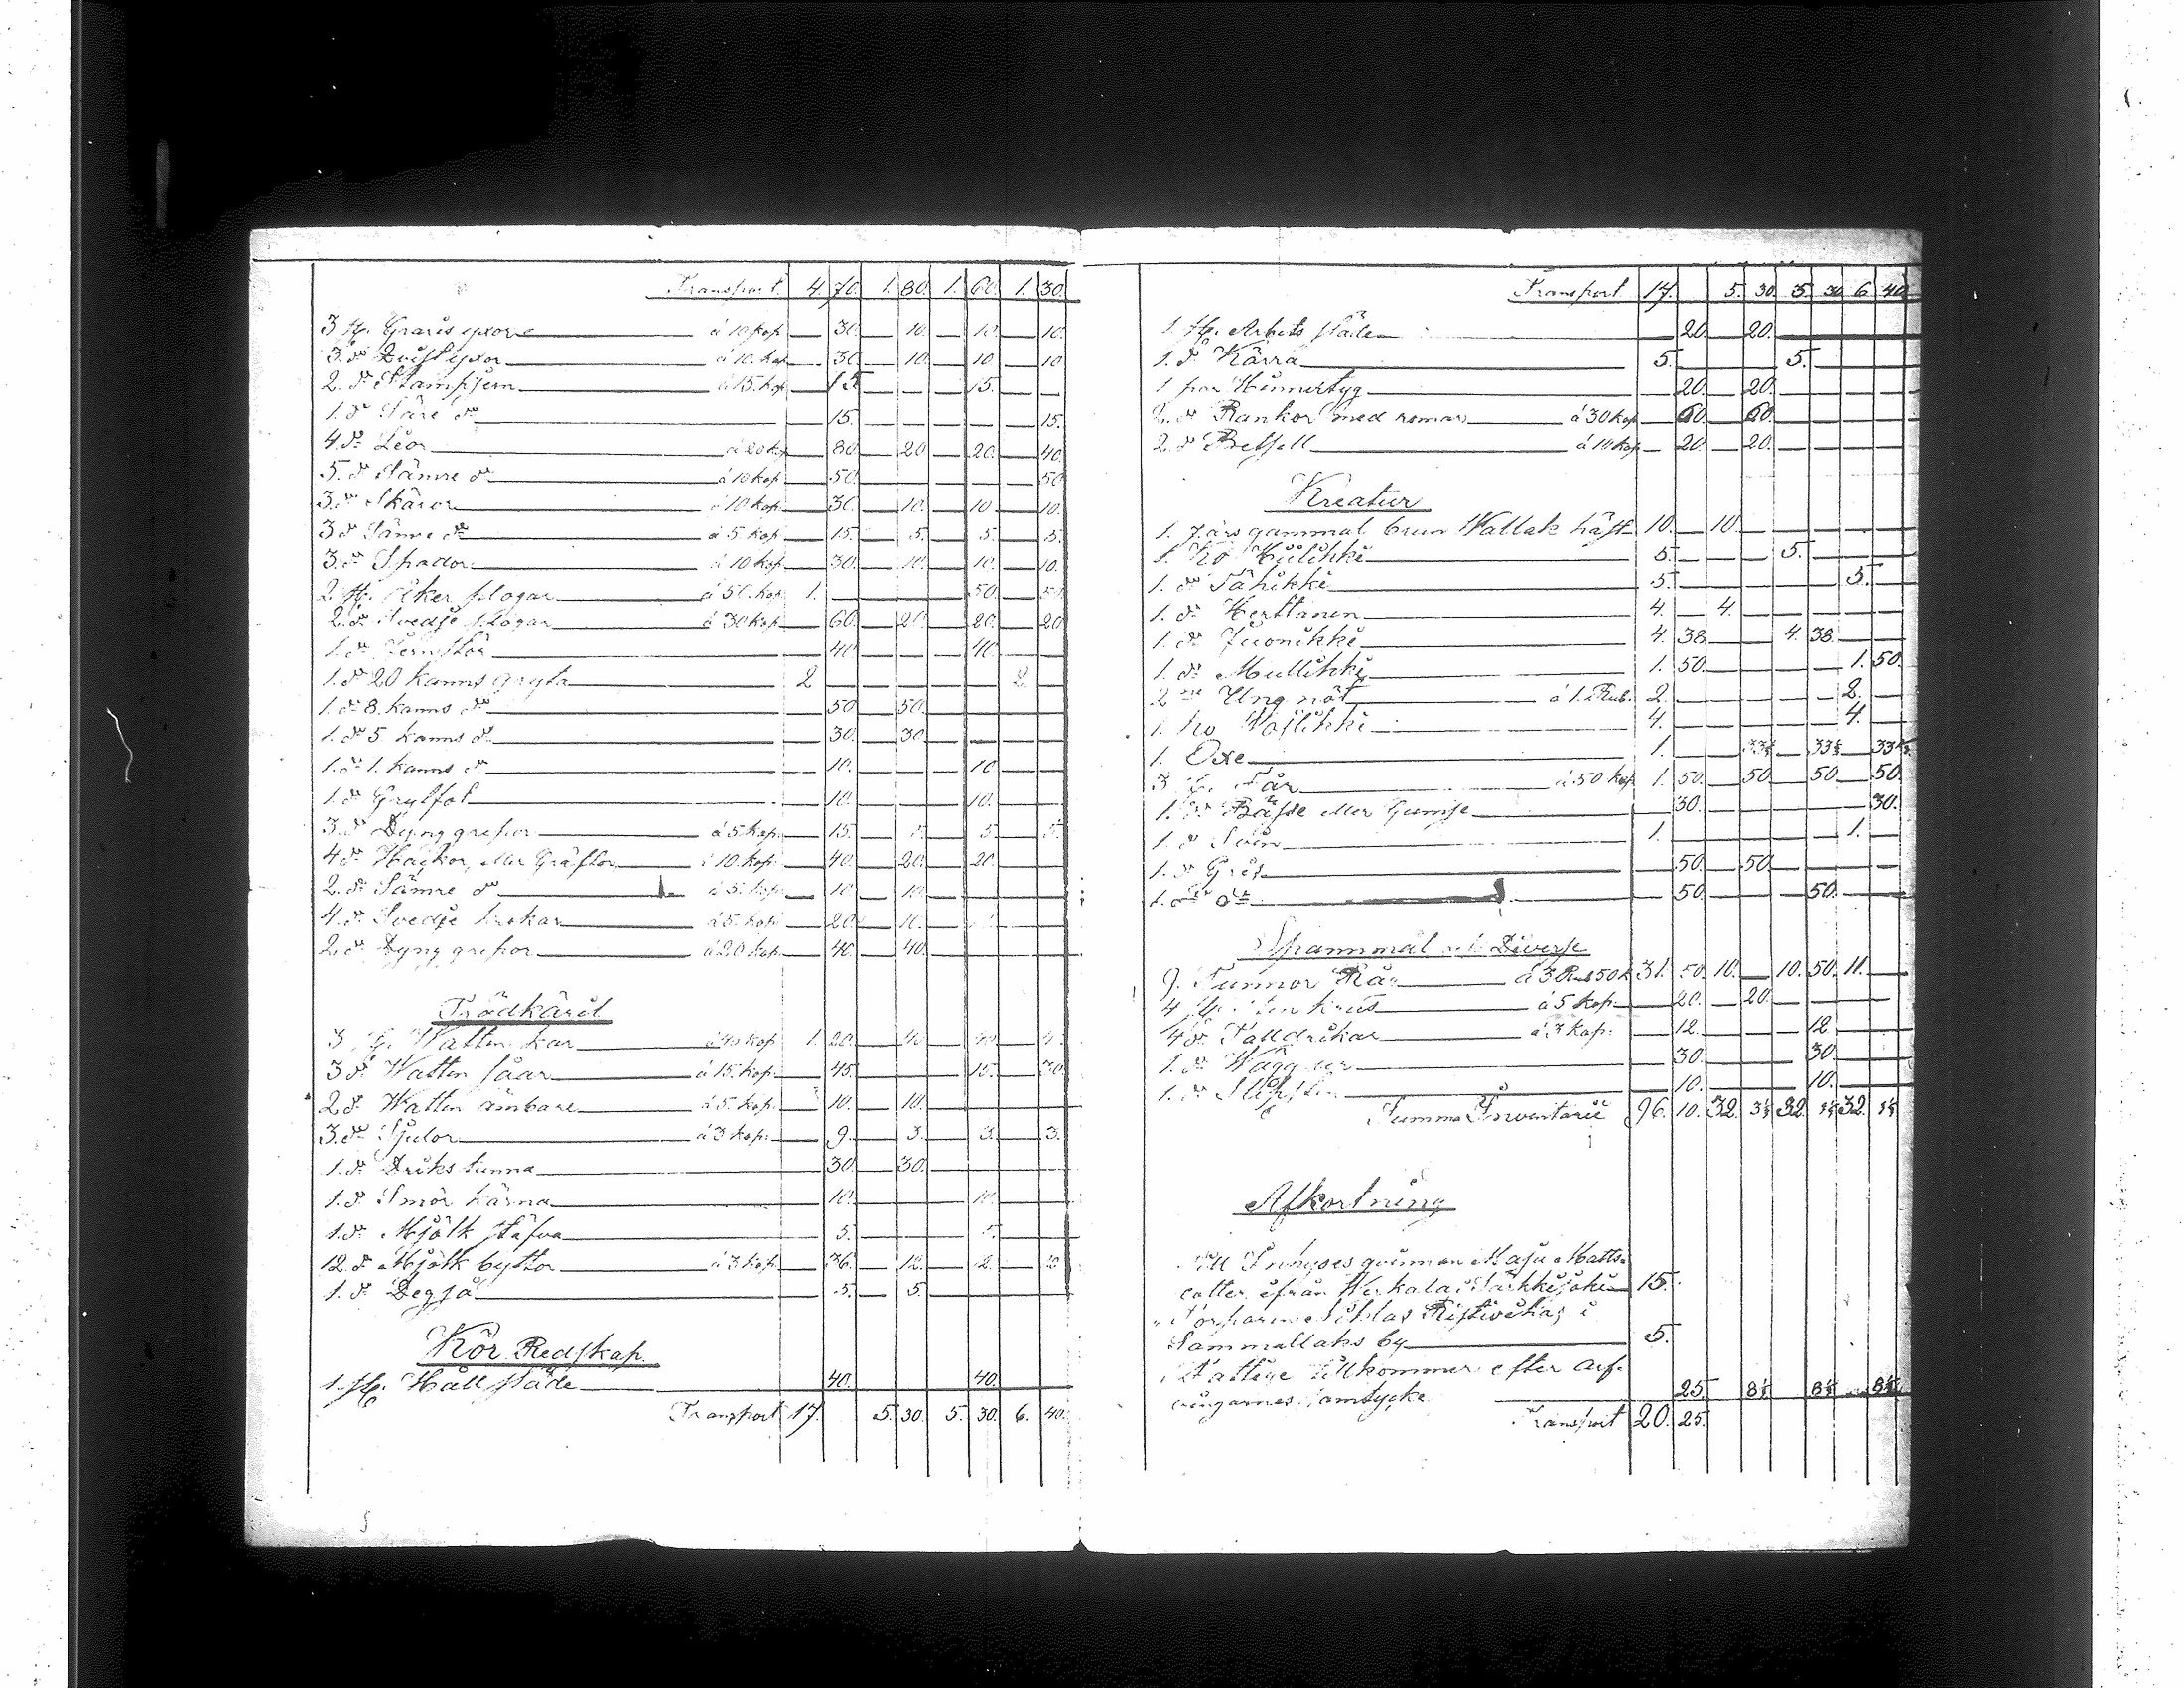 Transport 4. 70. 1. 80. 1. 60. 1. 30.
3 st. yxor à 10 kop 30. 10. 10 10.
3. do yxor à 10. kop 30. 10. 10 10
2. do à 15. kop 15 15.
1. do do 15. 15.
4. do Lior à 20 k 80. 20 20. 40.
5. do Sämre do à 10 kop 50. 50
3. do Skäror à 10 kop 30. 10. 10 10.
3 do Sämre do à 5 kop 15. 5. 5. 5.
3. do Spador à 10 kop 30. 10. 10. 10.
2 st. Åker plogar à 50. kop 1. 50. 50.
2. do Svedje plogar à 30 kop 60. 20. 20. 20
1. do Jernstör 40 40.
1. do 20 kanns gryta 2 2.
1. do 8. kanns do 50 50.
1. do 5. kanns do 30. 30.
1. do 1. kanns do 10. 10
1. do Grytfot 10. 10.
3. do Dyng grepor à 5 kop. 15. 5. 5. 5.
4 do Hackor, eller Gräftor à 10. kop. 40. 20. 20.
2. do Sämre do à 5. kop. 10 10.
4. do Svedje krokar à 5. kop. 20. 10.
2. do Dyng grepor à 20 kop. 40. 40.
Trädkäril
3 st. Watten kar à 40 kop. 1. 20. 40 40 40
3 do Watten såar à 15. kop. 45. 15. 30.
2 do Watten ämbare à 5. kop. 10. 10.
3. do à 3 kop. 9. 3. 3. 3.
1. do Driks tunna 30. 30.
1. do Smör kärna 10. 10.
1. do Mjölk stäfva 5. 5.
12. do Mjölk byttor à 3 kop. 36. 12. 12. 12
1. do Degså 5. 5.
Kör Redskap.
1. st. släde 40. 40.
Transport 17. 5. 30. 5. 30. 6. 40.
Transport 17. 5. 30. 5. 30 6. 40
1. st. Arbets släde 20. 20.
1. do Kärra 5. 5.
1 par 20. 20.
2. do Rankor med remar à 30 kop. 60. 60.
2. do Betsell à 10 kop. 20. 20.
Kreatur
1. 7. års gammal brun Wallak häst 10. 10.
1. Ko 5. 5.
1. do Tähikki 5. 5.
1. do Herttanen 4. 4.
1. do Juonikki 4. 38. 4. 38.
1. do Mullikki 1. 50. 1. 50.
2 Ung nöt à 1. Rub. 2. 2.
1. ko 4. 4.
1. Oxe 1. 33⅓ 33⅓ 33⅓
3 st. Får à 50 kop 1. 50. 50 50 50.
1. do Bässe eller Gumse 30. 30.
1. do Svin 1. 1.
1. do Gris 50. 50
1. do do 50 50.
Spannmål och Diverse
9. Tunnor Råg à 3 Rub 50 k 31. 50. 10. 10. 50. 11.
4 st. krus à 5 kop. 20. 20.
4 do à 3 kop. 12. 12
1. do Wägg ur 30. 30.
1. do Slipsten 10. 10.
Summa Inventarii 96. 10. 32. 3⅓ 32. 3⅓ 32. 3⅓
Afkortning
Till Inhyses qvinnan Maja Matts-
ifrån 15.
i
by 5.
Fattige tillkommer efter arf-
vingarnes samtycke 25. 8⅓ 8⅓ 8⅓
Transport 20. 25.